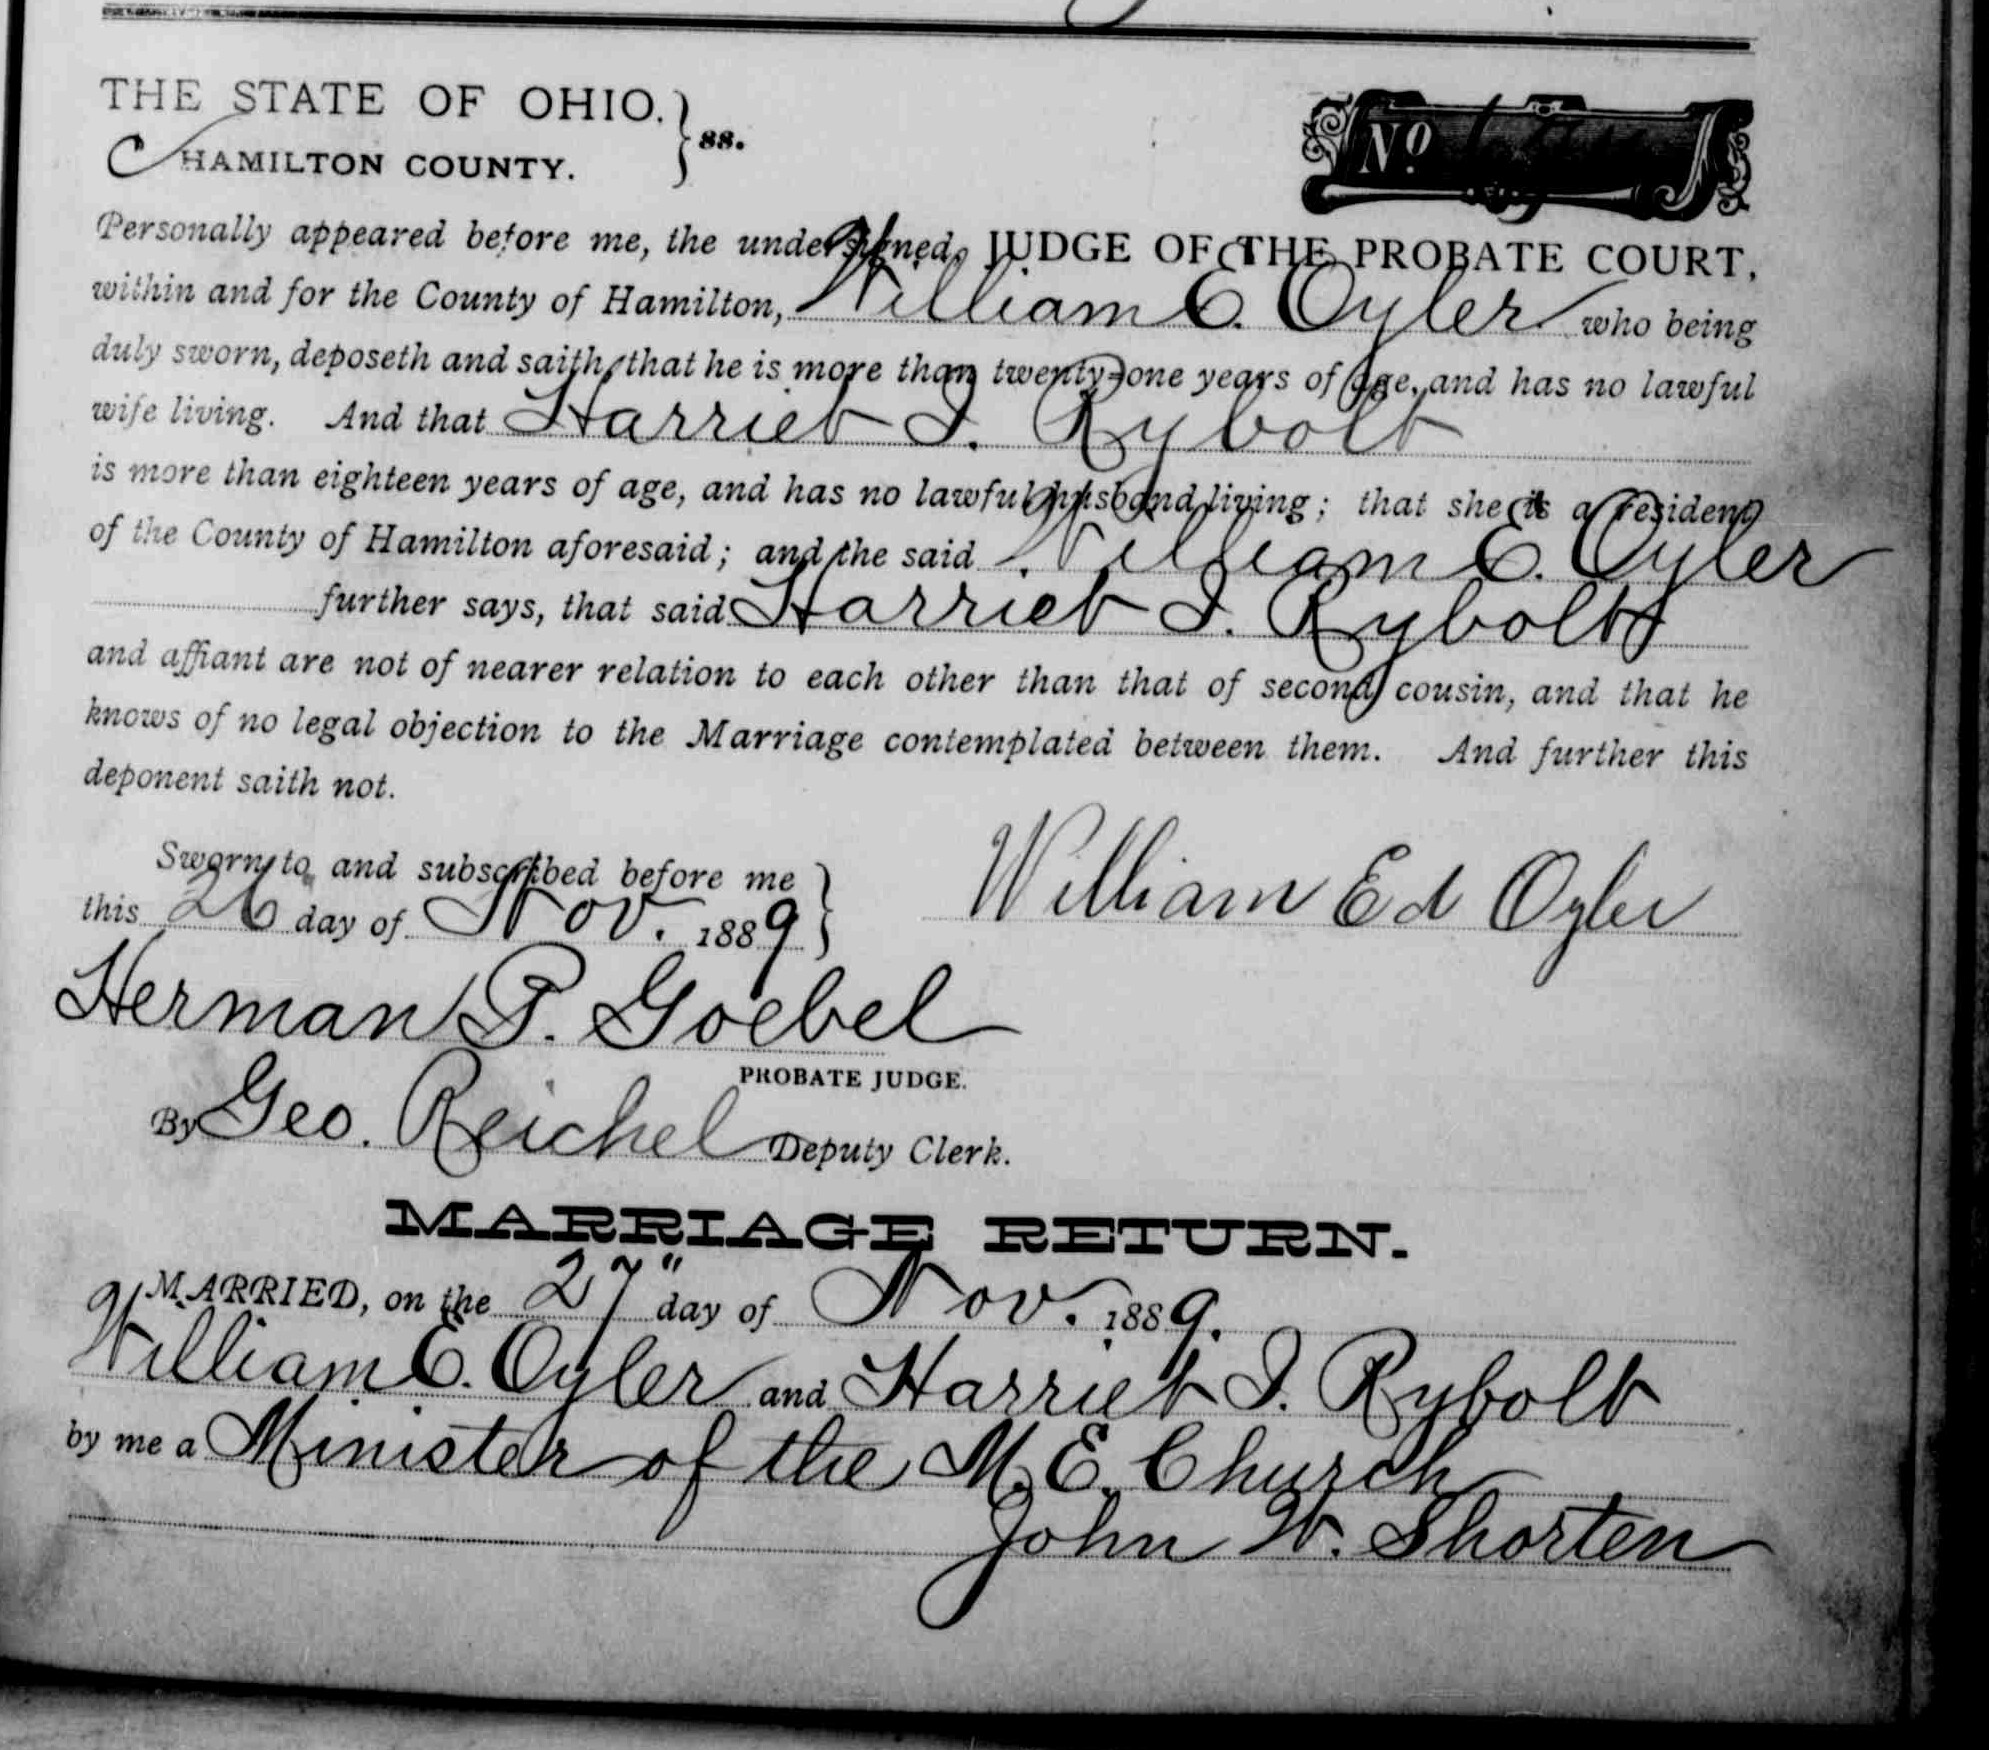 THE STATE OF OHIO. } ss.
HAMILTON COUNTY.
No
Personally appeared before me, the undersigned, JUDGE OF THE PROBATE COURT,
within and for the County of Hamilton, William E. Oyler who being
duly sworn, deposeth and saith, that he is more than twenty-one years of age, and has no lawful
wife living. And that Harriet I. Rybolt
is more than eighteen years of age, and has no lawful husband living; that she is a resident
of the County of Hamilton aforesaid; and the said William E. Oyler
further says, that said Harriet I. Rybolt
and affiant are not of nearer relation to each other than that of second cousin, and that he
knows of no legal objection to the Marriage contemplated between them. And further this
deponent saith not.
Sworn to and subscribed before me
this 26 day of Nov. 1889
William Ed Oyler
Herman P. Goebel
PROBATE JUDGE.
By Geo. Reichel Deputy Clerk.
MARRIAGE RETURN.
MARRIED, on the 27" day of Nov. 1889.
William E. Oyler and Harriet I. Rybolt
by me a Minister of the M. E. Church
John W. Shorten